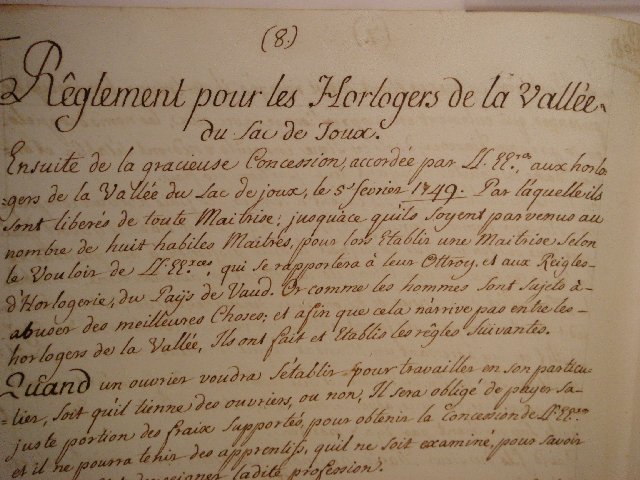 (8.)
Rêglement pour les Horlogers de la Vallée
du Lac de Joux.
Ensuite de la gracieuse Concession, accordée par LL. EE.ces aux horlo
-gers de la Vallée du Lac de joux, le 5e fevrier 1749. Par laquelle ils
sont liberés de toute Maitrise; jusquace qu'ils soyent parvenus au
nombre de huit habiles Maitrês, pour lors Etablir une Maitrise selon
le Vouloir de LL. EE.ces, qui se rapportera à leur Ottroy, et aux Reigles-
d'Horlogerie, du Païs de Vaud. Or comme les hommes sont Sujets à-
abuser des meilleures Choses; et afin que cela n'arrive pas entre les-
horlogers de la Vallée, Ils ont fait et Etablis les rêgles Suivantes.
Quand un ouvrier voudra S'établir pour travailler en son particu-
-lier, soit qu'il tienne des ouvriers, ou non, Il sera obligé de payer sa-
juste portion des fraix supportés, pour obtenir la Concession de LL. EE.ces
et il ne pourra tenir des apprentifs, qu'il ne soit examiné, pour savoir
ladite profession.